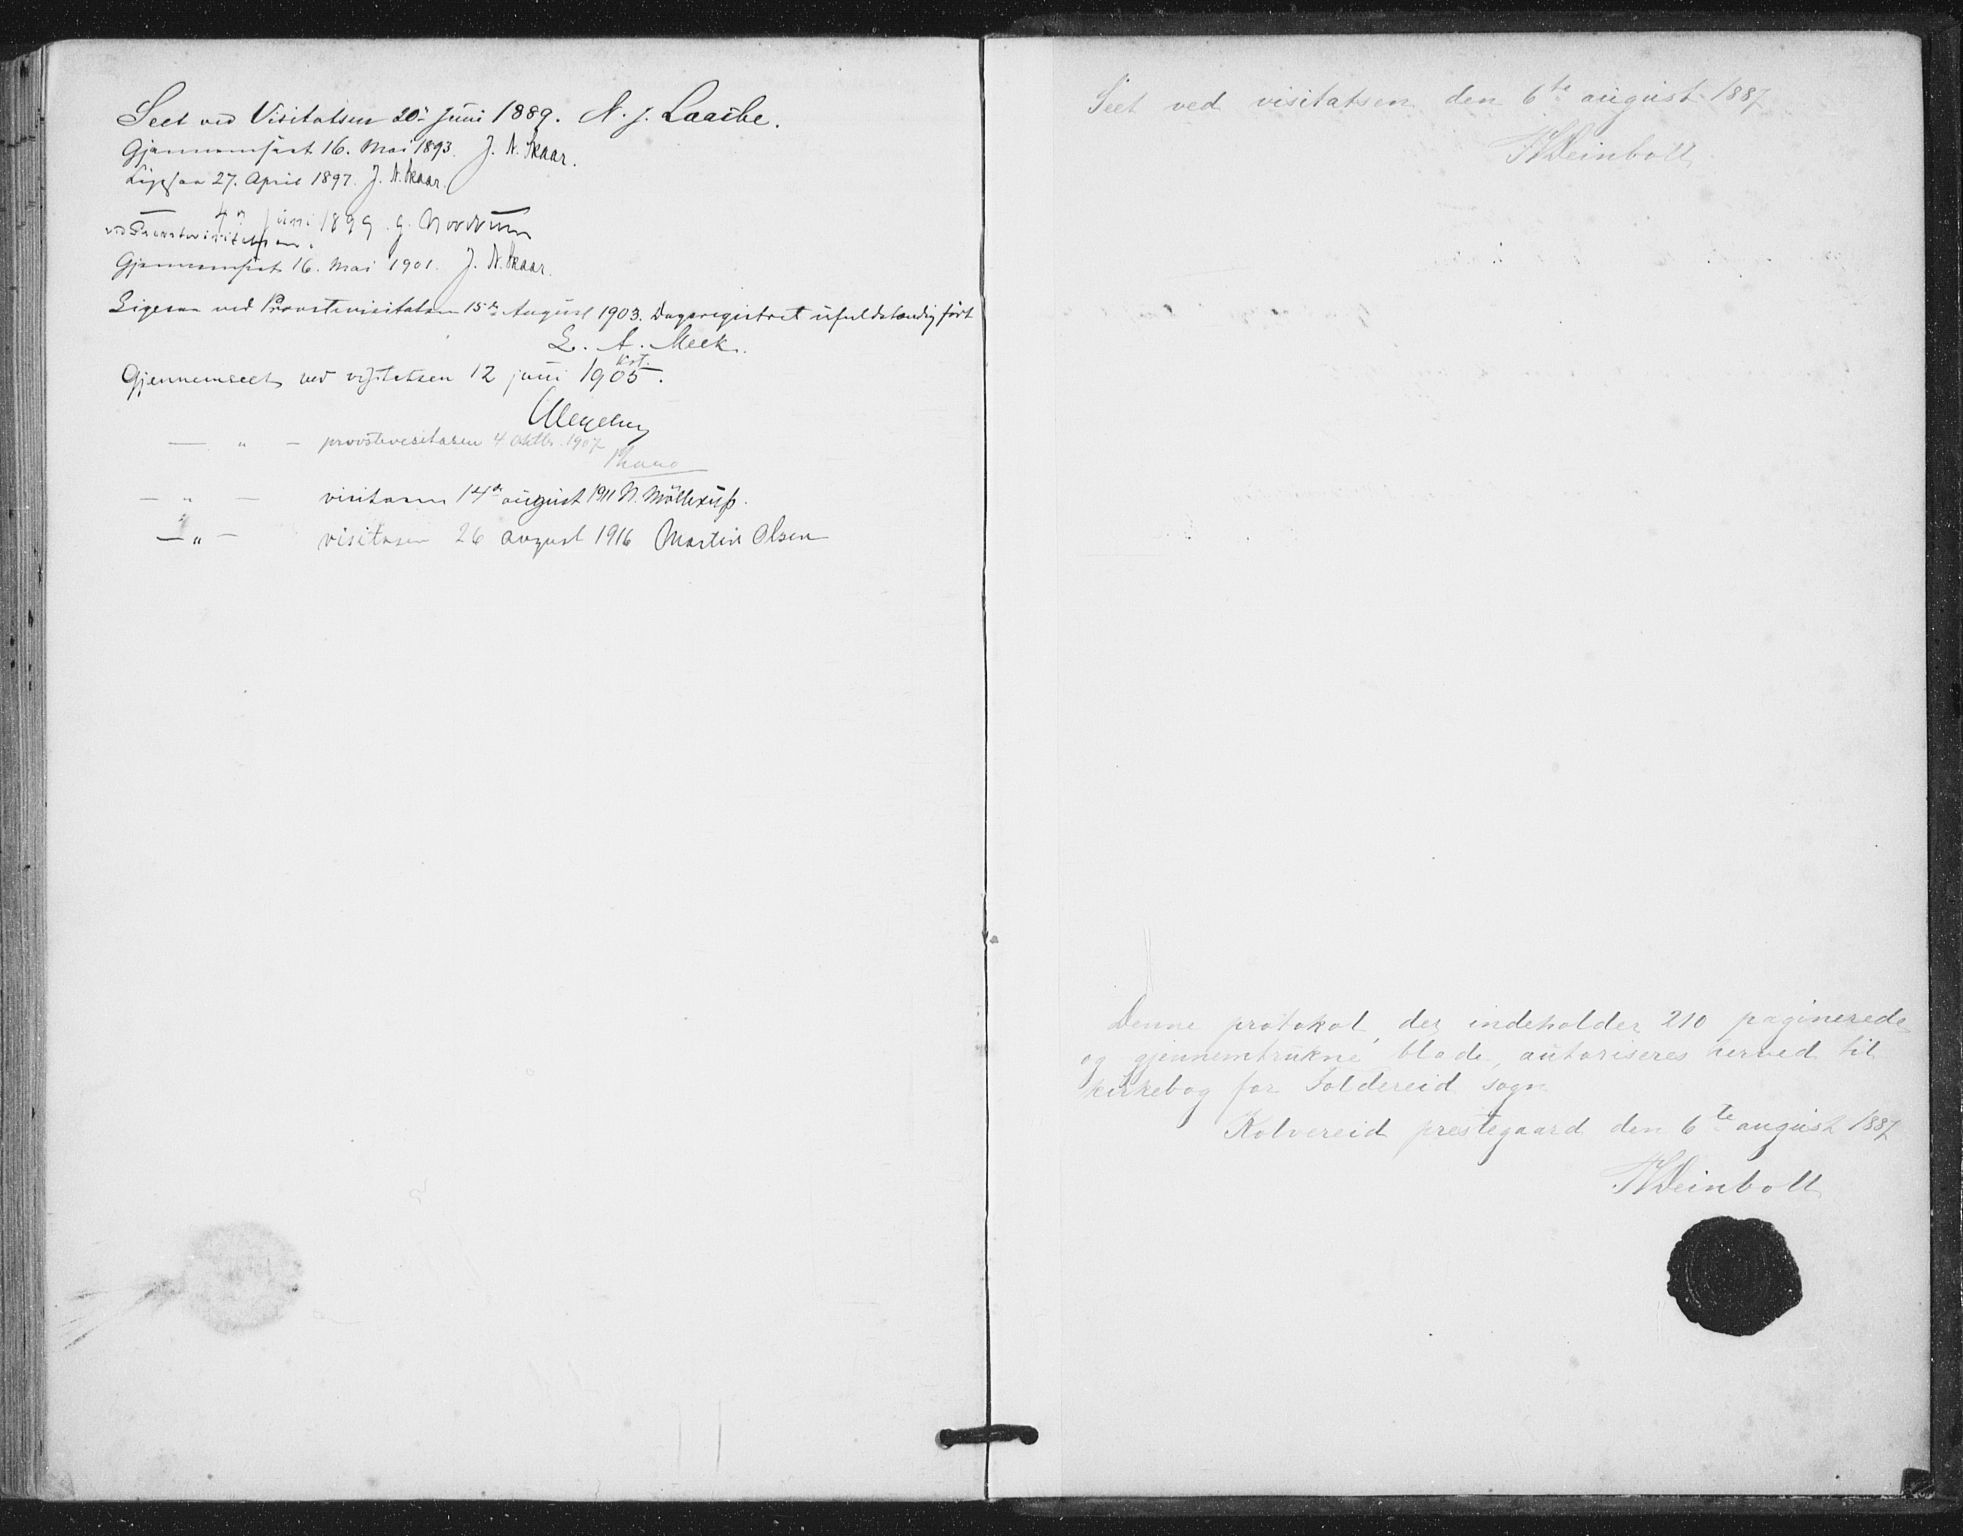 Seet ved Visitatsen 20de Juni 1889. N. J. Laache.
Gjennemseet 16. Mai 1893. J. N. Skaar.
Ligesaa 27. April 1897. J. N. Skaar.
— 4de Juni 1899. G. Nordrum
ved Provstevisitatsen.
Gjennemseet 16. Mai 1901. J. N. Skaar.
Ligesaa ved Provstevisitatsen 15de August 1903. Dagsregistret ufuldstændig ført
L. A. Meek.
kst.
Gjennemseet ved visitatsen 12 juni 1905.
Wexelsen
— " — provstevisitasen 4 Oktbr. 1907
— " — visitasen 14de august 1911 N. Møllerup.
— " — visitasen 26 avgust 1916 Martin Olsen
Seet ved visitatsen den 6te august 1887
Deinboll
Denne protokol, der indeholder 210 paginerede
og gjennemtrukne blade, autoriseres herved til
kirkebog for Foldereid sogn
Kolvereid prestegaard den 6te august 1887
Deinboll